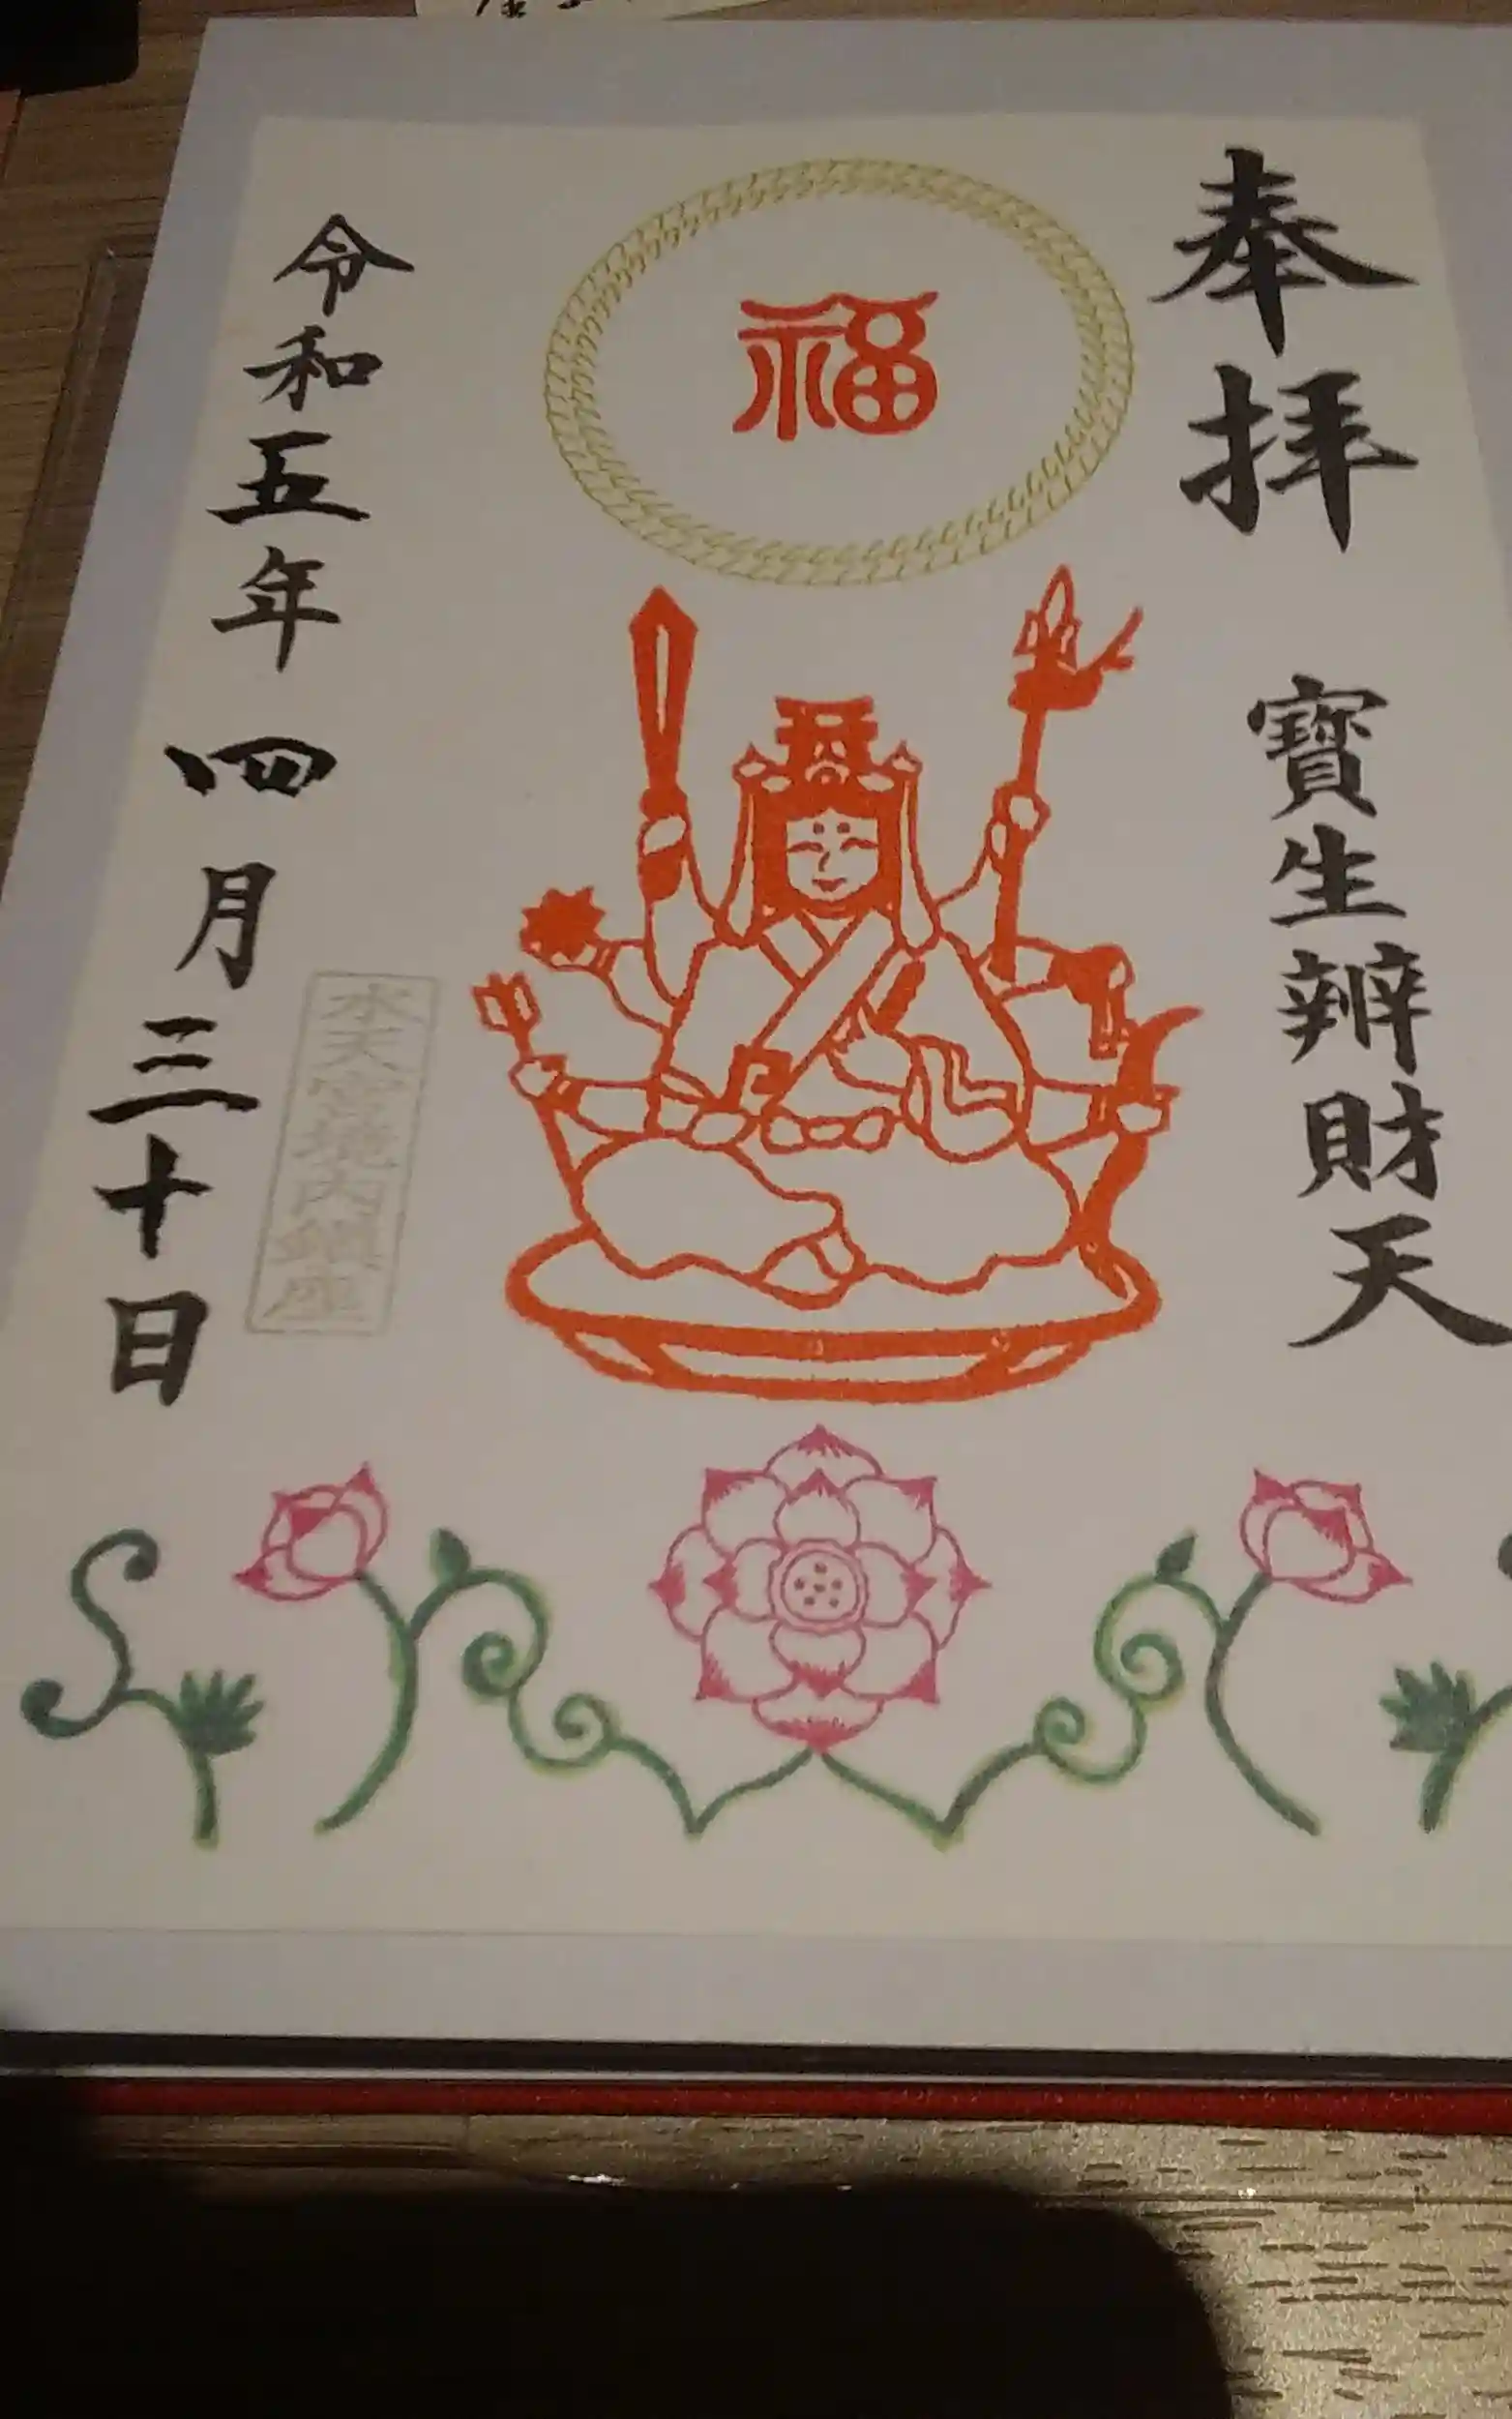 奉拝
寶生辨財天
福
水天宮境内鎮座
令和五年四月三十日